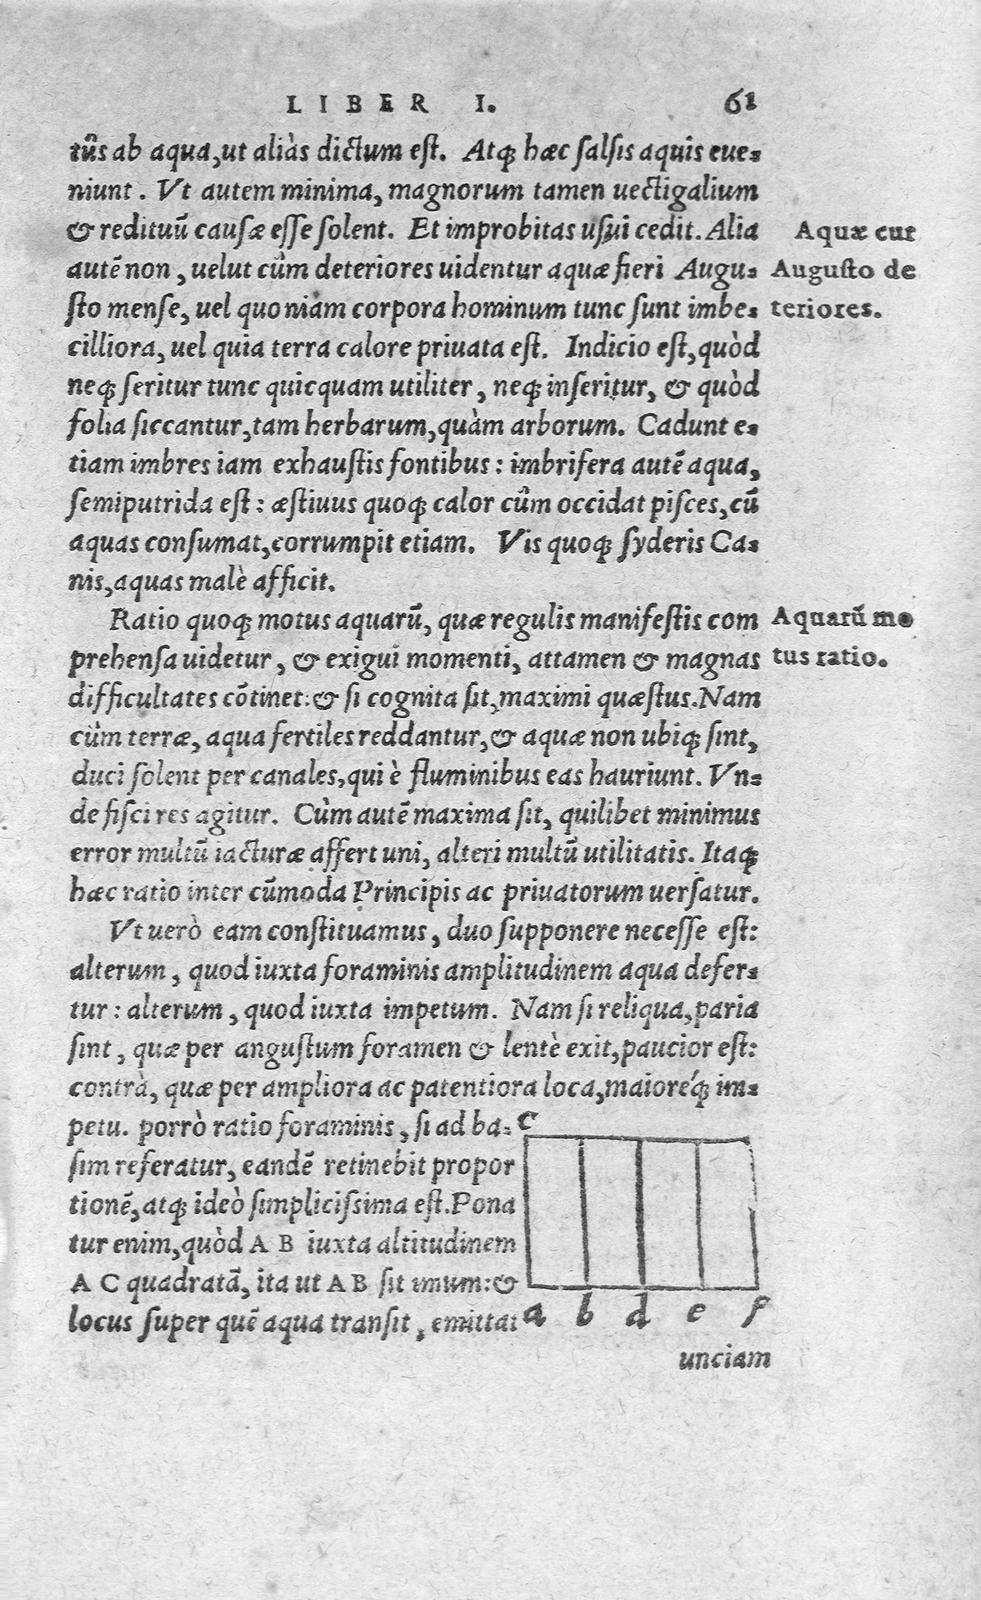 LIBER I. 61
tũs ab aqua, ut aliàs dictum est. Atq; hæc salsis aquis eue-
niunt. Vt autem minima, magnorum tamen uectigalium
& redituũ causæ esse solent. Et improbitas usui cedit. Alia
autẽ non, uelut cùm deteriores uidentur aquæ fieri Augu-
sto mense, uel quoniam corpora hominum tunc sunt imbe-
cilliora, uel quia terra calore priuata est. Indicio est, quòd
neq; seritur tunc quicquam utiliter, neq; inseritur, & quòd
folia siccantur, tam herbarum, quàm arborum. Cadunt e-
tiam imbres iam exhaustis fontibus: imbrifera autẽ aqua,
semiputrida est: æstiuus quoq; calor cùm occidat pisces, cũ
aquas consumat, corrumpit etiam. Vis quoq; syderis Ca-
nis, aquas malè afficit.
Aquæ cur
Augusto de
teriores.
Ratio quoq; motus aquarũ, quæ regulis manifestis com
prehensa uidetur, & exigui momenti, attamen & magnas
difficultates cõtinet: & si cognita sit, maximi quæstus. Nam
cùm terræ, aqua fertiles reddantur, & aquæ non ubiq; sint,
duci solent per canales, qui è fluminibus eas hauriunt. Vn-
de fisci res agitur. Cùm autẽ maxima sit, quilibet minimus
error multũ iacturæ affert uni, alteri multũ utilitatis. Itaq;
hæc ratio inter cũmoda Principis ac priuatorum uersatur.
Aquarũ mo
tus ratio.
Vt uerò eam constituamus, duo supponere necesse est:
alterum, quod iuxta foraminis amplitudinem aqua defer-
tur: alterum, quod iuxta impetum. Nam si reliqua, paria
sint, quæ per angustum foramen & lentè exit, paucior est:
contrà, quæ per ampliora ac patentiora loca, maioreq́; im-
petu. porrò ratio foraminis, si ad ba-
sim referatur, eandẽ retinebit propor
tionẽ, atq; ideò simplicissima est. Pona
tur enim, quòd A B iuxta altitudinem
A C quadratã, ita ut A B sit imum: &
locus super quẽ aqua transit, emittat
c
a b d e f
unciam